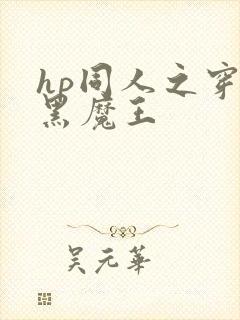 hp同人之穿
黑魔王
吴元华